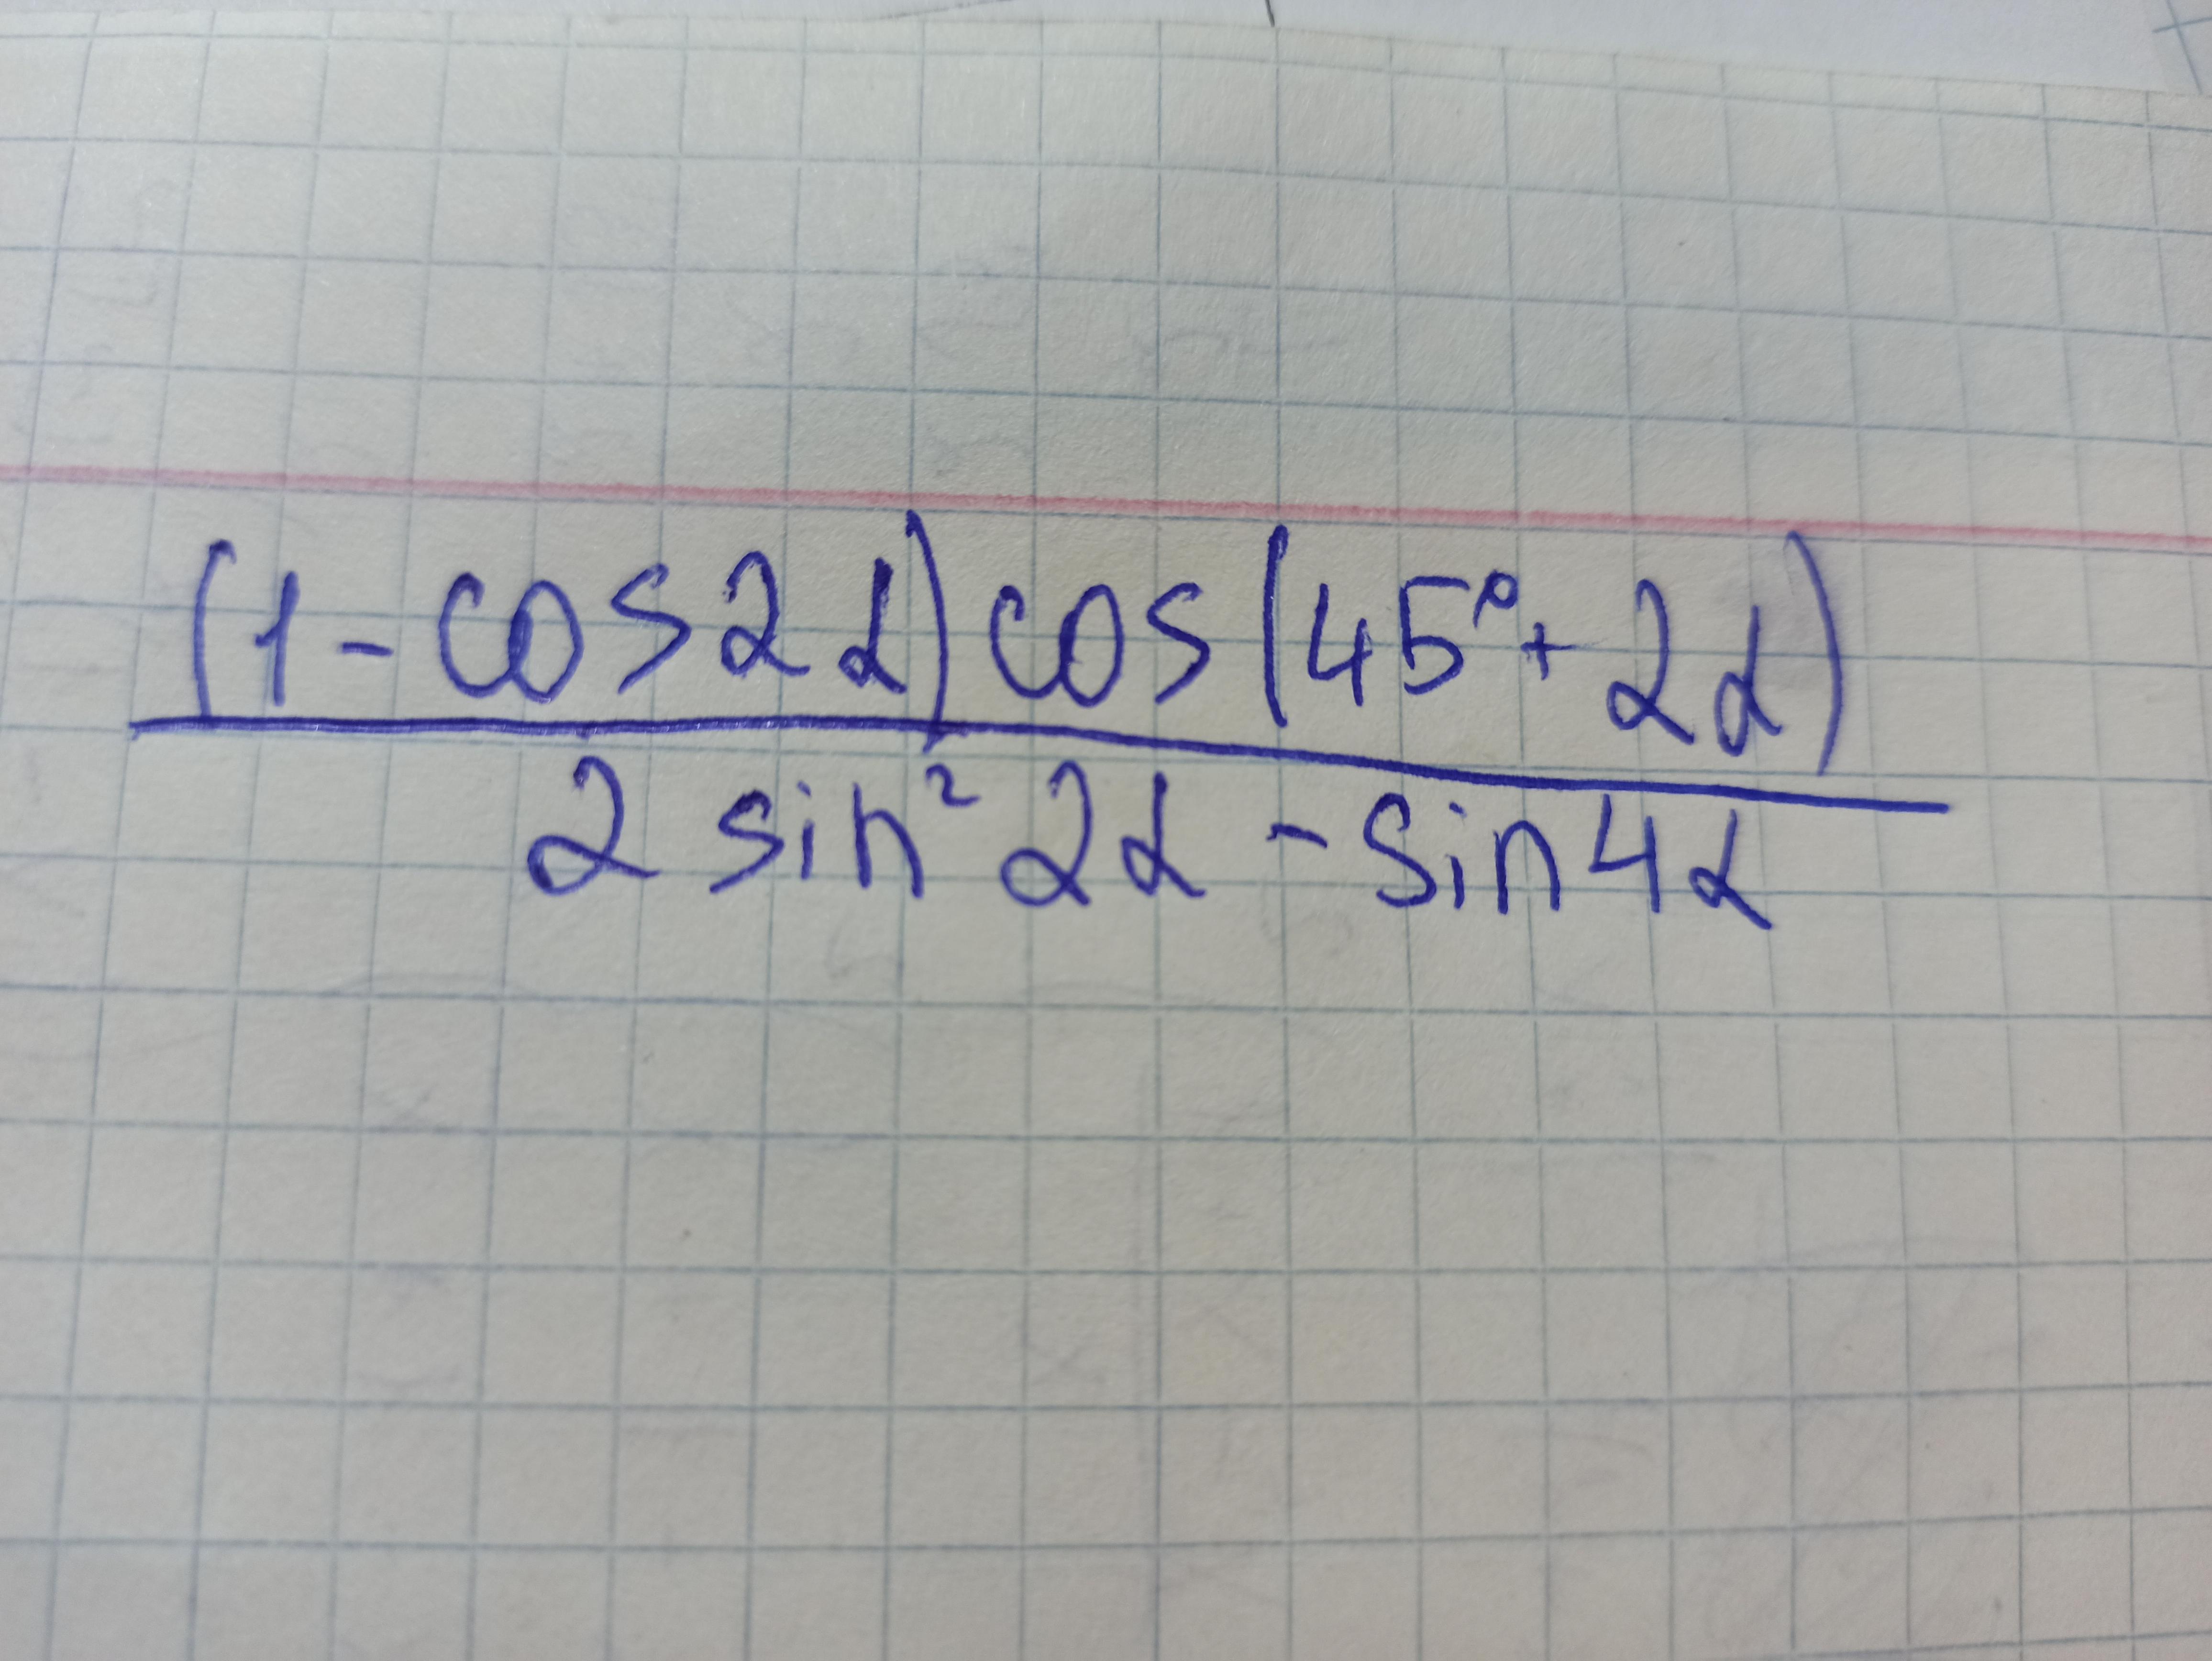 (1-cos2α)cos(45°+2α)
2 sin² 2α - sin4α